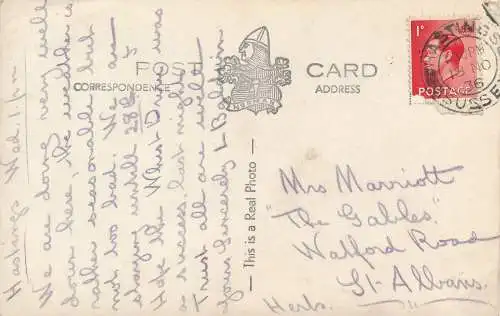 POST CARD
CORRESPONDENCE
ADDRESS
Hastings Wed. 1 pm
We are doing very well
down here, the weather is
rather seasonable but
not too bad. We are
staying until 28th
Hope the Whist Drive was
a success, last night.
Trust all are well
Yours Sincerely L
— This is a Real Photo —
1D
POSTAGE
HASTINGS
PM
NO
36
SUSSE
Mrs Marriott
"The Gables"
Watford Road
St. Albans.
Herts.